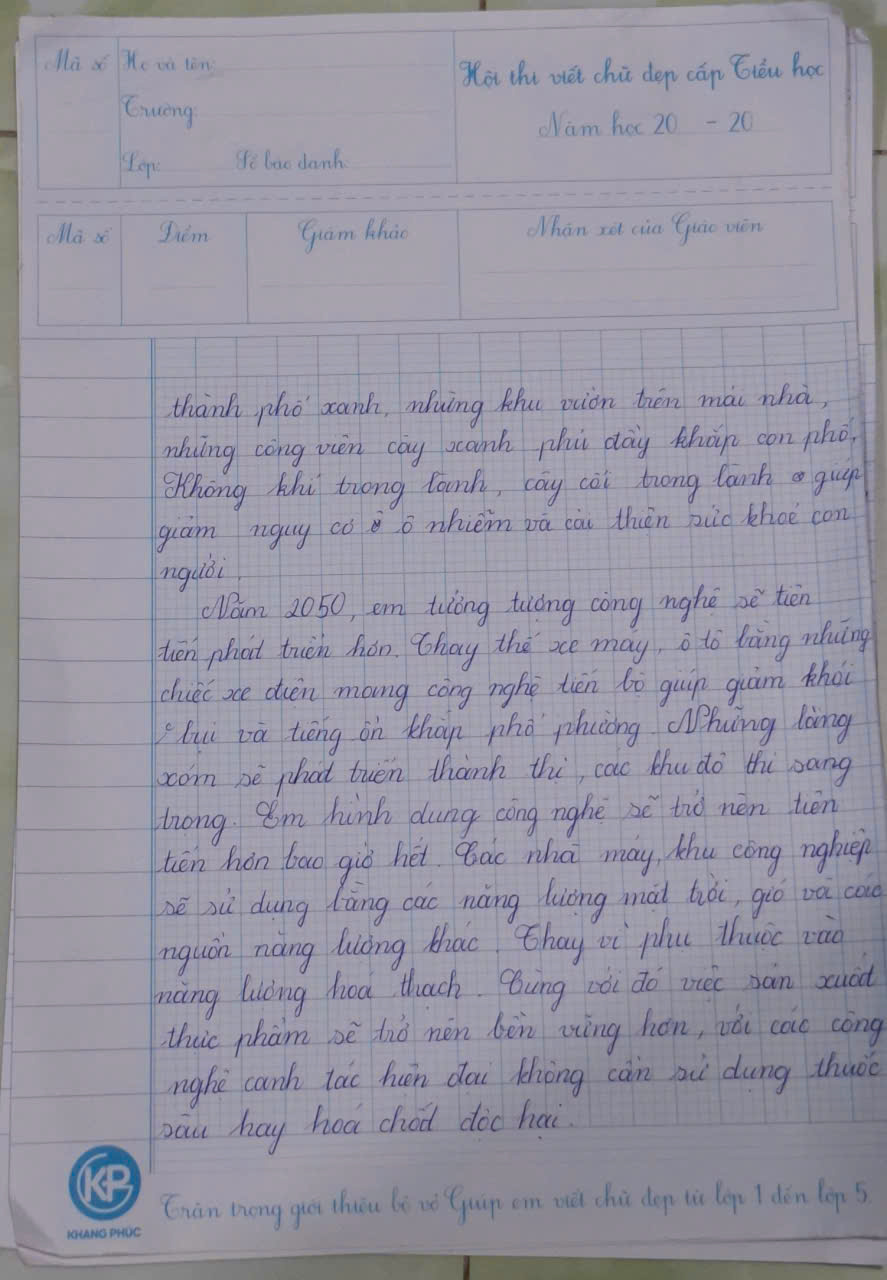 Mã số
Họ và tên:
Trường:
Lớp: Số báo danh:
Hội thi viết chữ đẹp cấp Tiểu học
Năm học 20 - 20
Mã số
Điểm
Giám khảo
Nhận xét của Giáo viên
thành phố xanh, những khu vườn trên mái nhà,
những công viên cây xanh phủ đầy khắp con phố,
Không khí trong lành, cây cối trong lành giúp
giảm nguy cơ ô nhiễm và cải thiện sức khoẻ con
người.
Năm 2050, em tưởng tượng công nghệ sẽ tiên
tiến phát triển hơn. Thay thế xe máy, ô tô bằng những
chiếc xe điện mang công nghệ tiến bộ giúp giảm khói
bụi và tiếng ồn khắp phố phường. Những làng
xóm sẽ phát triển thành thị, các khu đô thị sang
trọng. Em hình dung công nghệ sẽ trở nên tiên
tiến hơn bao giờ hết. Các nhà máy, khu công nghiệp
sẽ sử dụng bằng các năng lượng mặt trời, gió và các
nguồn năng lượng khác. Thay vì phụ thuộc vào
năng lượng hoá thạch. Cùng với đó việc sản xuất
thực phẩm sẽ trở nên bền vững hơn, với các công
nghệ canh tác hiện đại không cần sử dụng thuốc
sâu hay hoá chất độc hại.
KP
KHANG PHÚC
Trân trọng giới thiệu bộ vở Giúp em viết chữ đẹp từ lớp 1 đến lớp 5